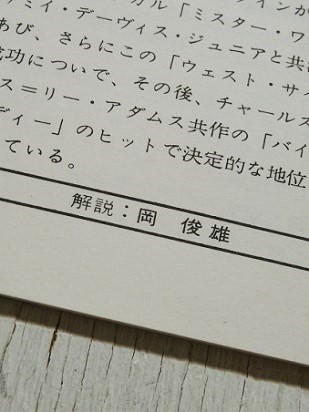 ラインが
カル「ミスター・ワ
ミイ・デーヴィス・ジュニアと共
あび、さらにこの「ウェスト・サイ
成功についで、その後、チャールズ
ス＝リー・アダムス共作の「バイ
ディー」のヒットで決定的な地位
ている。
解説：岡 俊雄